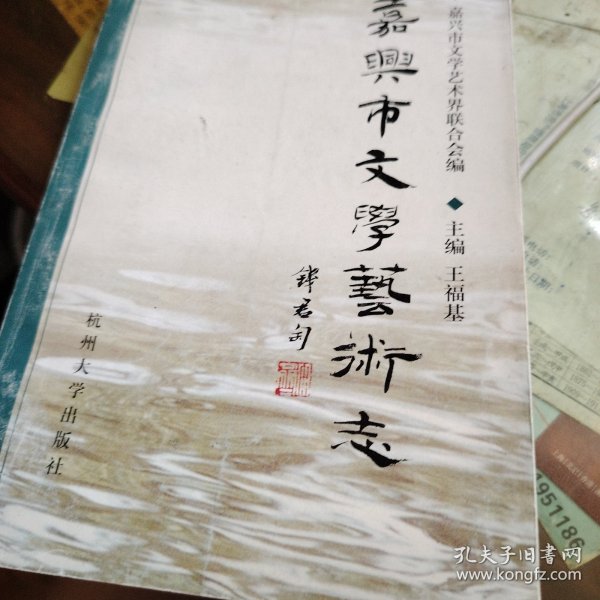 嘉兴市文学艺术界联合会编
◆主编 王福基
嘉興市文學藝術志
钱君匋
杭州大学出版社
7951186
孔夫子旧书网
www.kongfz.com